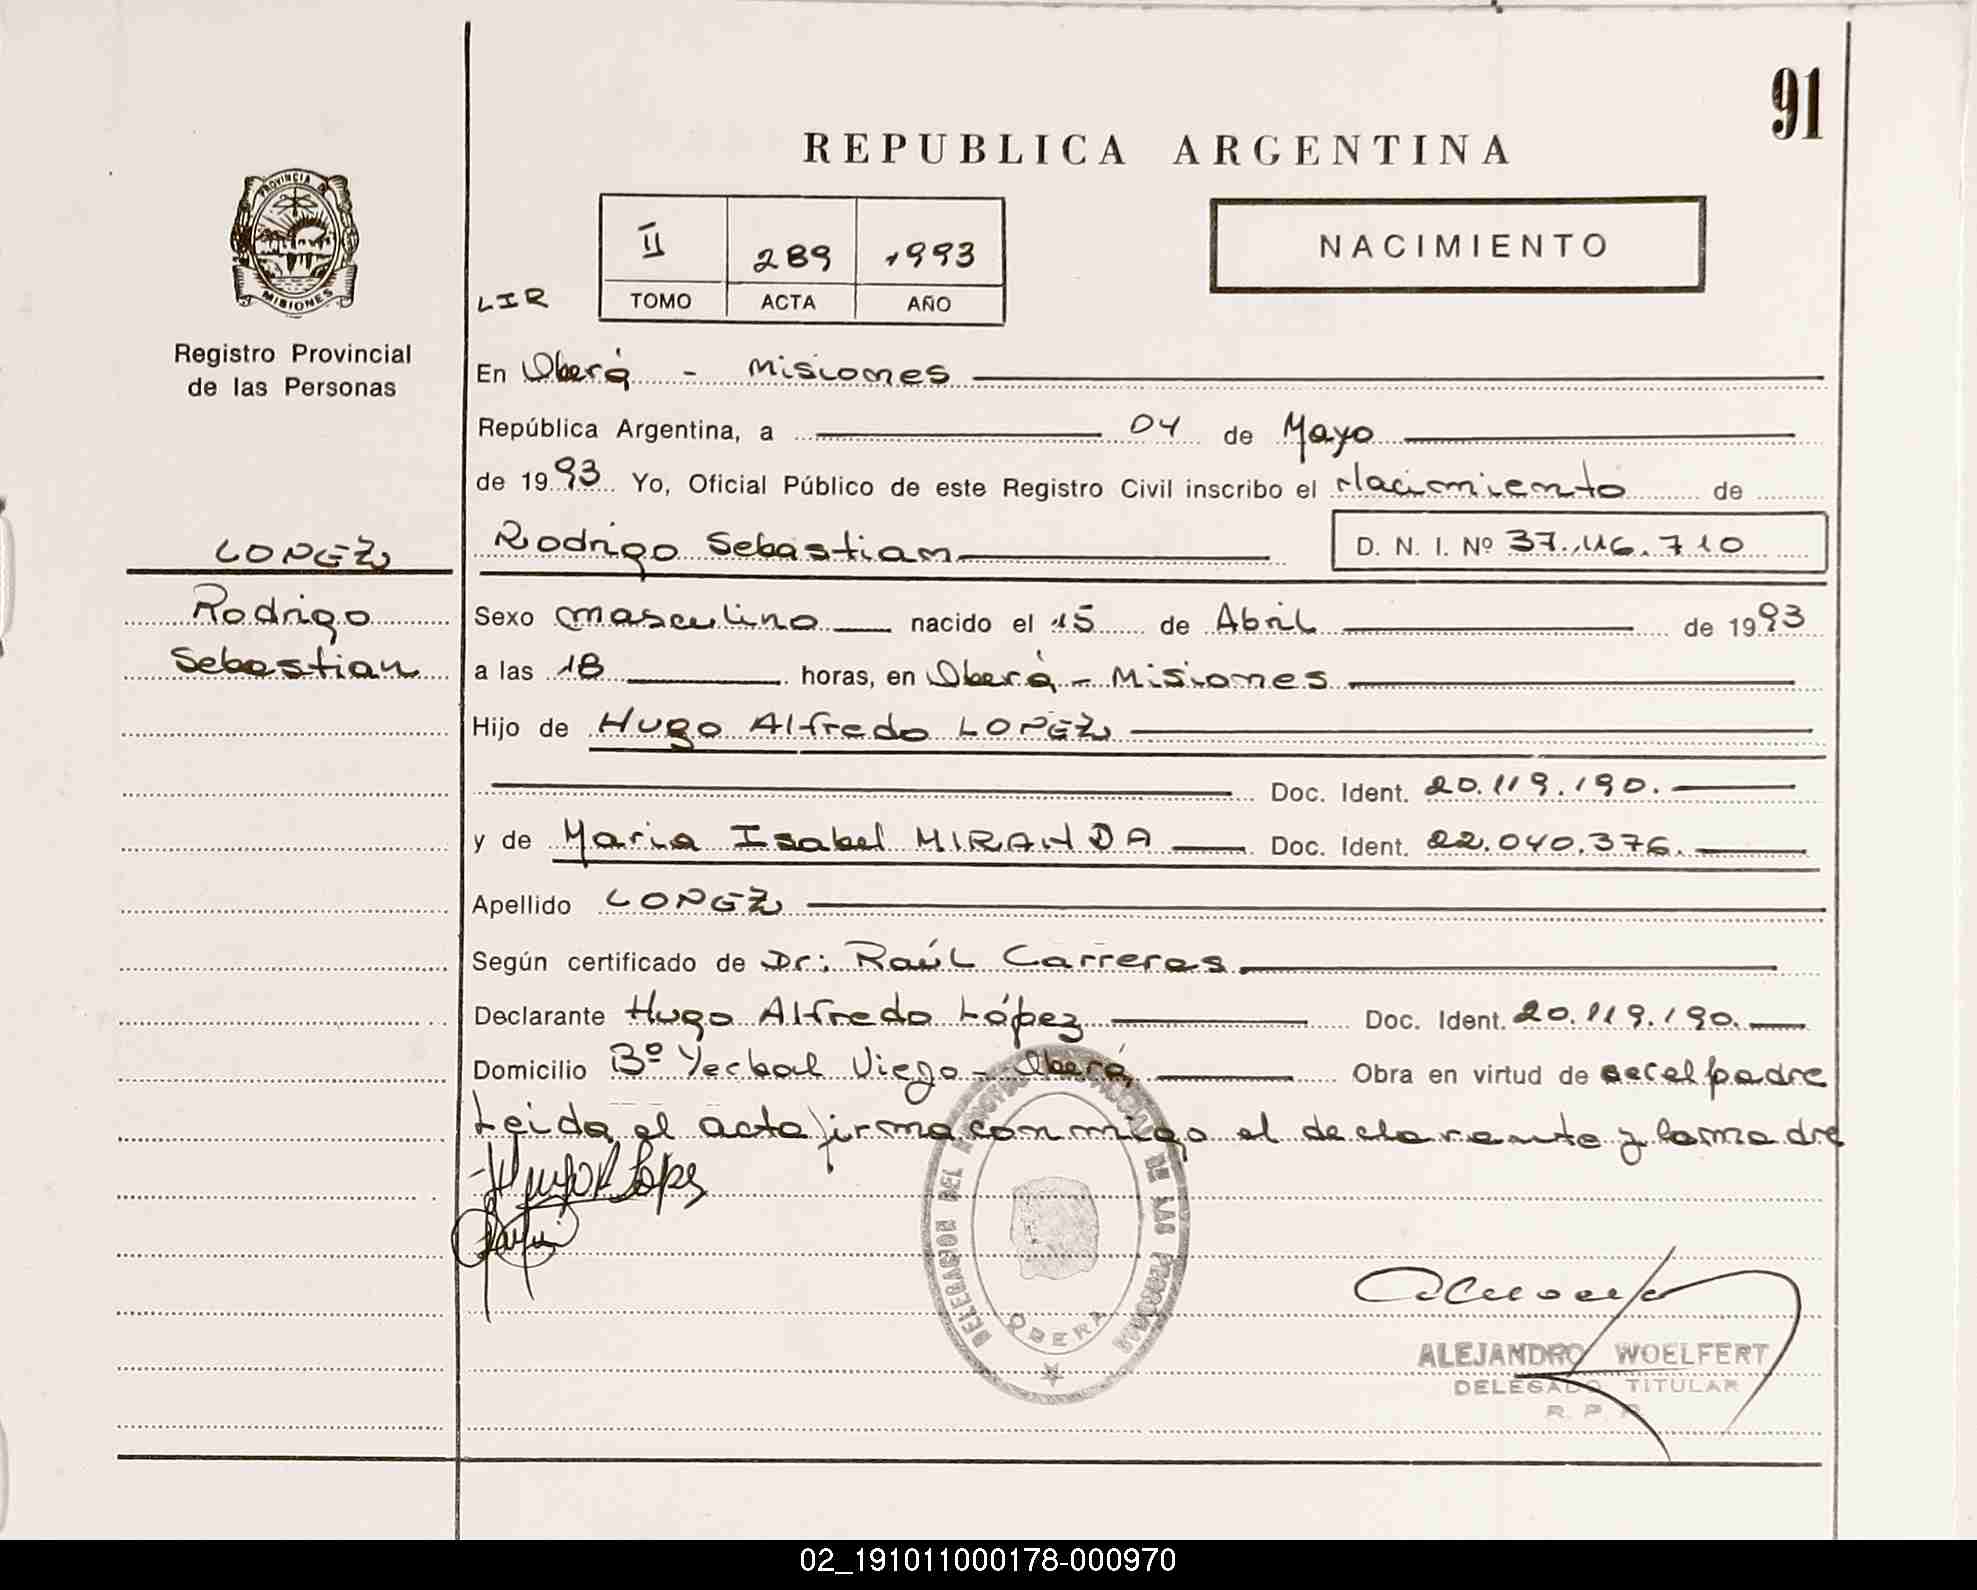 91
REPUBLICA ARGENTINA
PROVINCIA DE
MISIONES
Registro Provincial
de las Personas
II 289 1993
TOMO ACTA AÑO
NACIMIENTO
LIR
En Oberá - Misiones
República Argentina, a 04 de Mayo
de 1993 Yo, Oficial Público de este Registro Civil inscribo el Nacimiento de
LOPEZ
Rodrigo
Sebastian
Rodrigo Sebastian D. N. I. Nº 37.116.710
Sexo masculino nacido el 15 de Abril de 1993
a las 18 horas, en Oberá - Misiones
Hijo de Hugo Alfredo LOPEZ
Doc. Ident. 20.119.190.
y de Maria Isabel MIRANDA Doc. Ident. 22.040.376.
Apellido LOPEZ
Según certificado de Dr: Raúl Carreras
Declarante Hugo Alfredo López Doc. Ident. 20.119.190.
Domicilio Bº Yerbal Viejo - Oberá Obra en virtud de ser el padre
Leida el acta firma conmigo el declarante y la madre
DELEGACION DEL REGISTRO PROVINCIAL DE LAS PERSONAS
OBERA
ALEJANDRO WOELFERT
DELEGADO TITULAR
R. P. P.
02_191011000178-000970